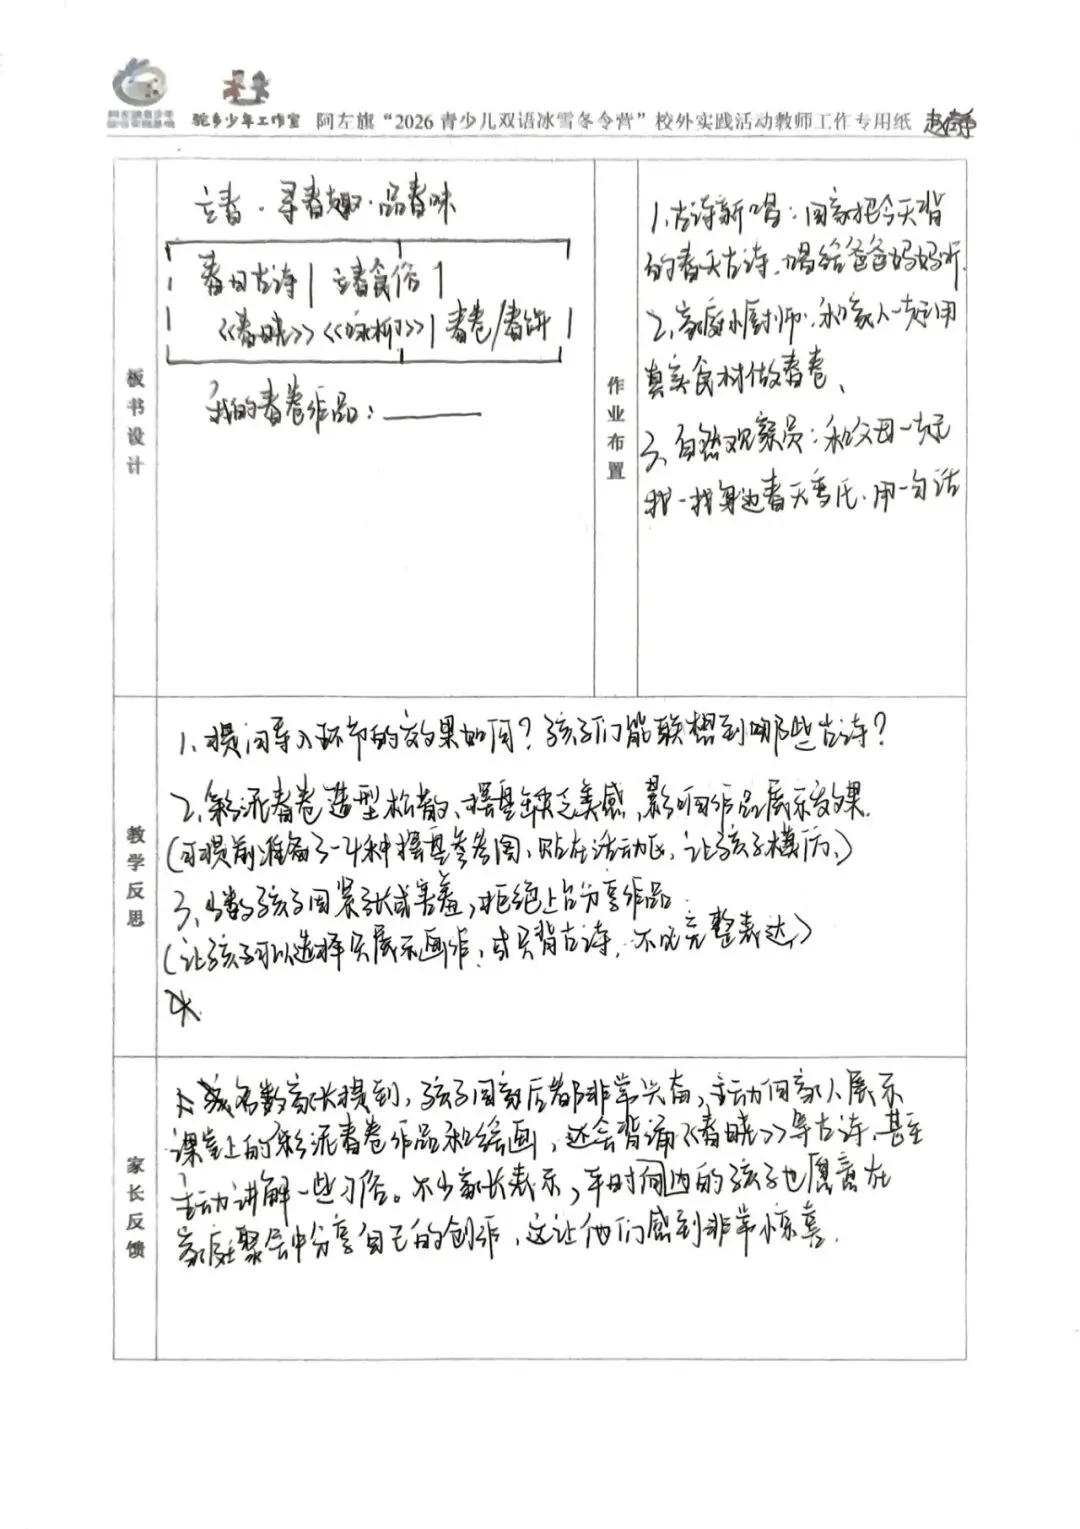 驼乡少年工作室 阿左旗“2026青少儿双语冰雪冬令营”校外实践活动教师工作专用纸
板书设计
立春·寻春趣·品春味
春日古诗 | 立春食俗 |
《春晓》《咏柳》 | 春卷/春饼 |
我的春卷作品：
作业布置
1、古诗新唱：回家把今天背
的春天古诗，唱给爸爸妈妈听
2、家庭小厨师：和家人一起用
真实食材做春卷、
3、自然观察员：和父母一起
找一找身边春天季氏、用一句话
教学反思
1、提问导入环节的效果如何？孩子们能联想到哪些古诗？
2、彩泥春卷造型松散、摆盘缺乏美感，影响作品展示效果.
(可提前准备3-4种摆盘参考图，贴在活动区，让孩子模仿、)
3、少数孩子因紧张或害羞，拒绝上台分享作品.
(让孩子可以选择只展示画作，或只背古诗，不必完整表达、)
家长反馈
多名数家长提到，孩子回家后都非常兴奋，主动向家人展示
课堂上的彩泥春卷作品和绘画，还会背诵《春晓》等古诗、甚至
主动讲解一些习俗。不少家长表示，平时内向的孩子也愿意在
家庭聚会中分享自己的创作，这让他们感到非常惊喜.